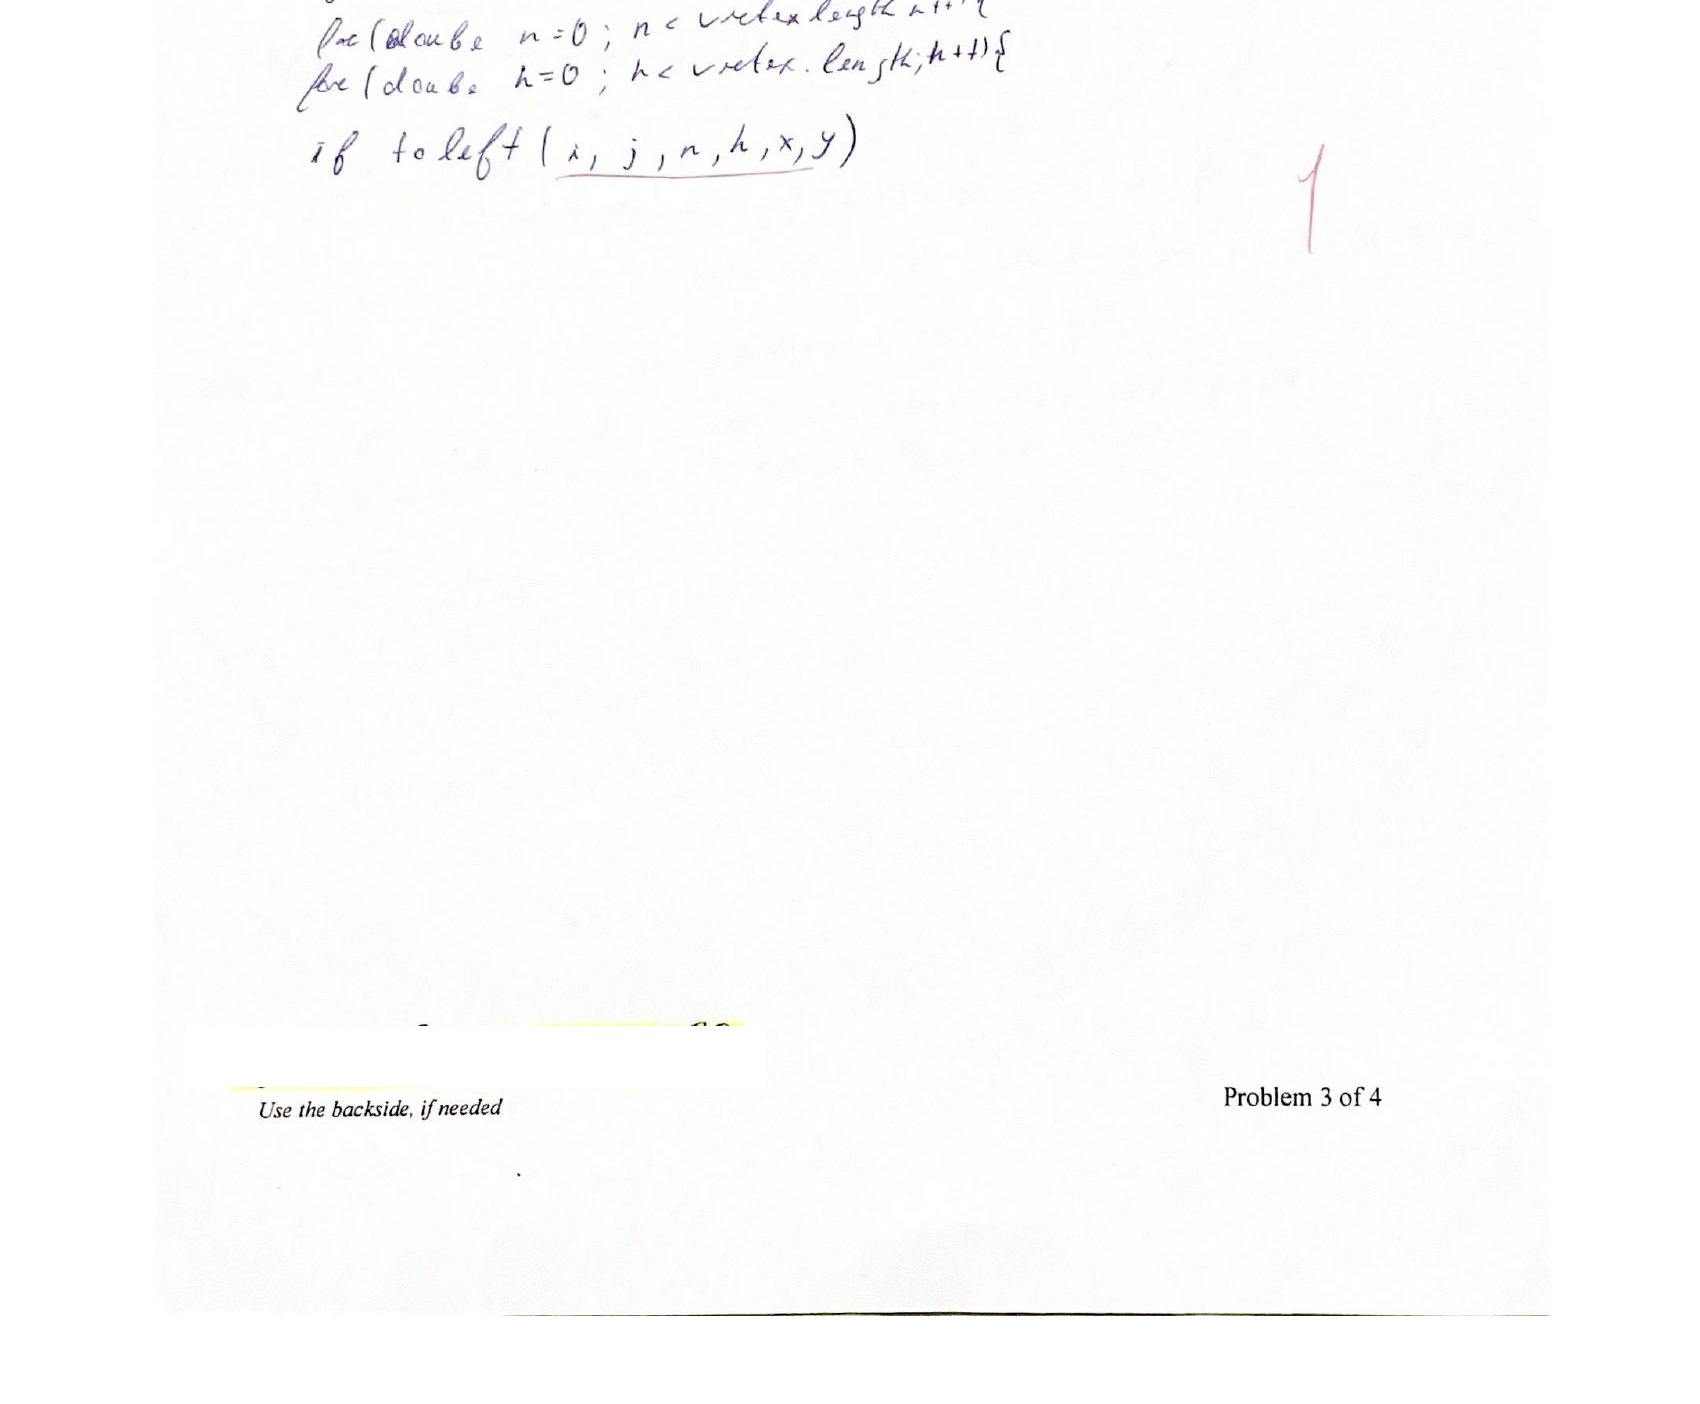 for (doube n=0; n< vretex length n++ {
for (doube h=0; h< vretex. length; h++) {
if toleft (i, j, n, h, x, y)
1
Use the backside, if needed
Problem 3 of 4